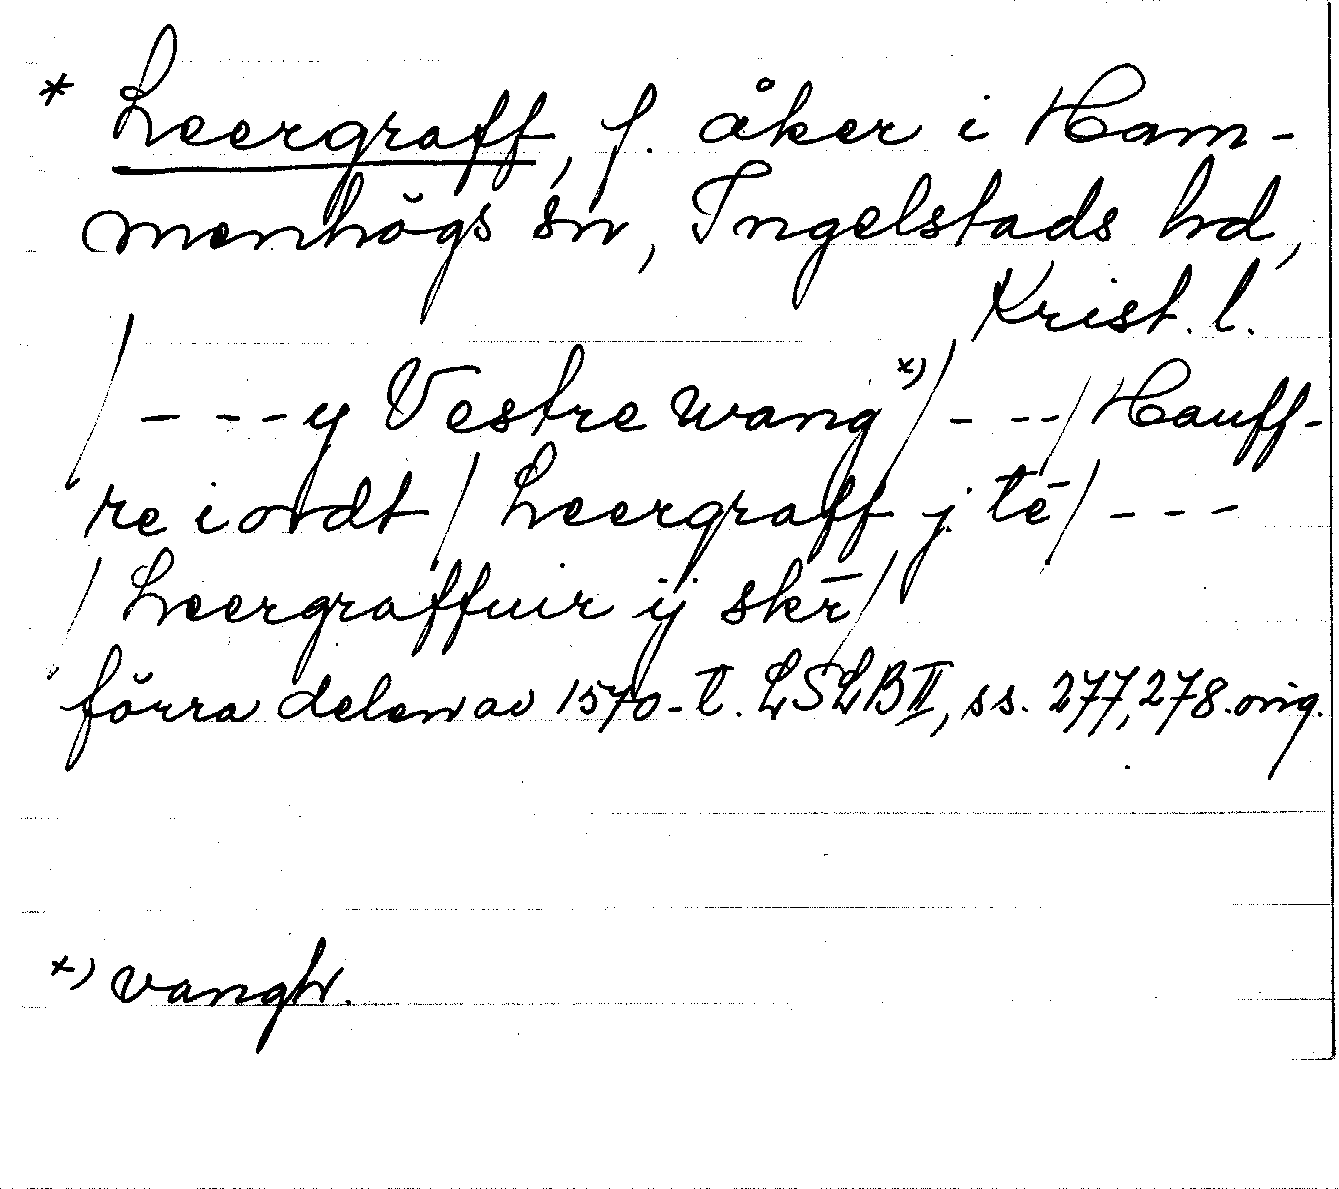 * Leergraff, f. åker i Ham-
menhögs sn, Ingelstads hd,
Krist. l.
/ - - - y Vestre wang x) / - - - / Hauff-
re iordt / Leergraff j. tē / - - -
/ Leergraffuir ij skr̄ /
förra delen av 1570-t. LSLB II, ss. 277, 278. orig.
x) vangh.